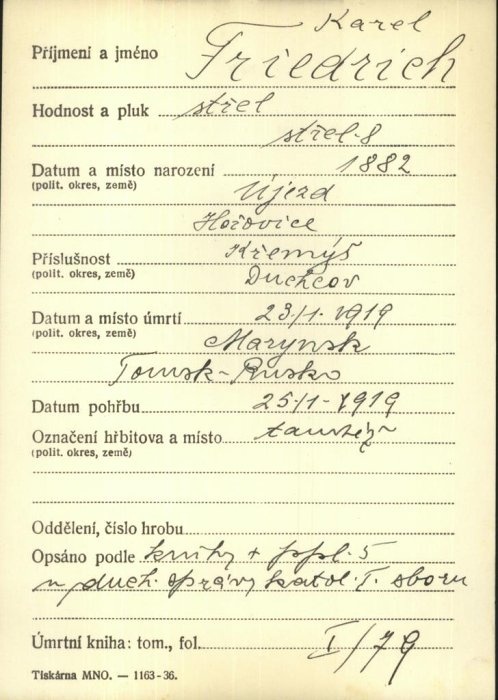 Karel
Příjmení a jméno Friedrich
Hodnost a pluk střel
střel. 8
Datum a místo narození 1882
(polit. okres, země) Újezd
Hořovice
Příslušnost Křemýš
(polit. okres, země) Duchcov
Datum a místo úmrtí 23/1. 1919
(polit. okres, země) Marynsk
Tomsk-Rusko
Datum pohřbu 25/1-1919
Označení hřbitova a místo tamtéž
(polit. okres, země)
Oddělení, číslo hrobu
Opsáno podle knihy + ppl. 5
u duch. správy katol. I. sboru
Úmrtní kniha: tom., fol. I/79
Tiskárna MNO. — 1163-36.